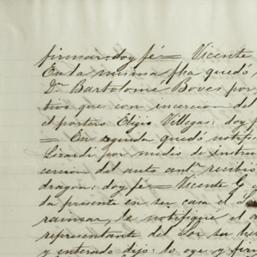 firmar: doy fé = Vicente
En la misma fha quedó,
Dn Bartolomé Boves por
tivo que con incercion del
el portero Eligio Villegas: doy f
= En seguida quedó notifi
Girardi por medio de instruc
cercion del auto antr. recibió
dragon: doy fé = Vicente G
la presente en ser casa el
le notifiqué el a
representante del Sor
y enterado dijo: lo oye y firm